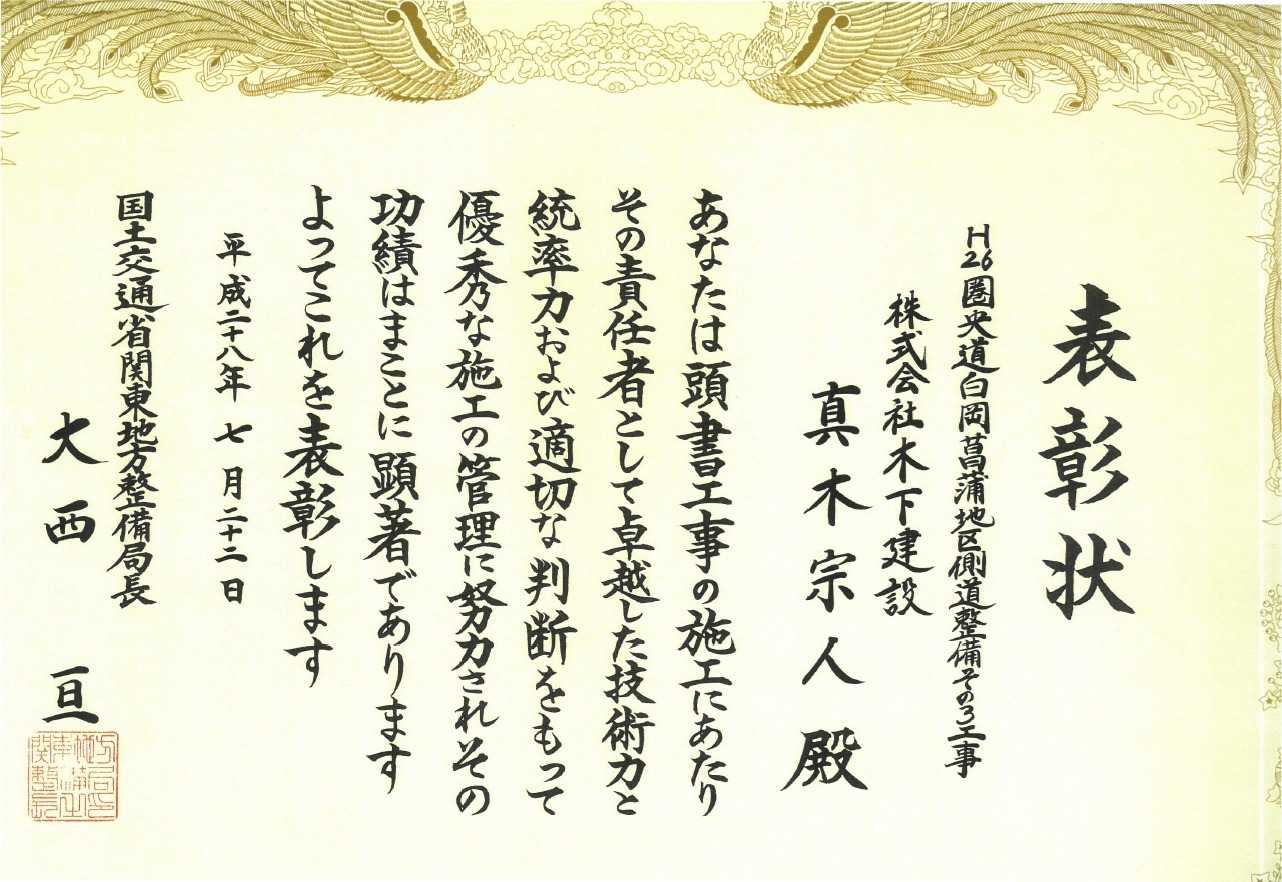 表彰状
H26圏央道白岡菖蒲地区側道整備その3工事
株式会社木下建設
真木宗人殿
あなたは頭書工事の施工にあたり
その責任者として卓越した技術力と
統率力および適切な判断をもって
優秀な施工の管理に努力されその
功績はまことに顕著であります
よってこれを表彰します
平成二十八年七月二十二日
国土交通省関東地方整備局長
大西亘